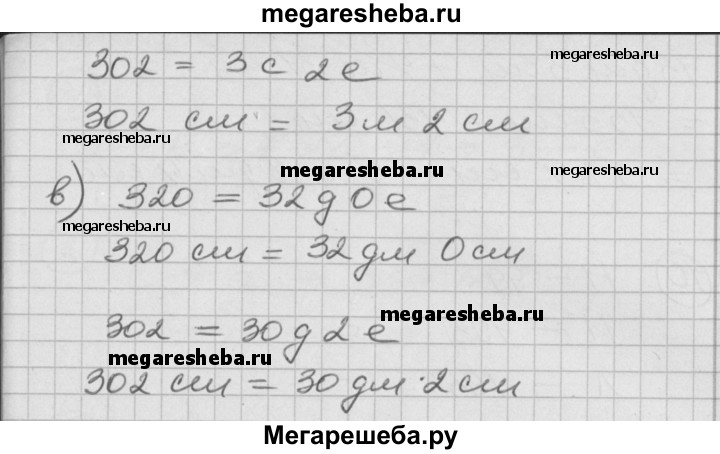 megaresheba.ru
302 = 3с 2е
megaresheba.ru
302 см = 3м 2 см
megaresheba.ru
megaresheba.ru
megaresheba.ru
в) 320 = 32д 0е
megaresheba.ru
320 см = 32 дм 0 см
megaresheba.ru
302 = 30д 2е
megaresheba.ru
302 см = 30 дм 2 см
Мегарешеба.ру